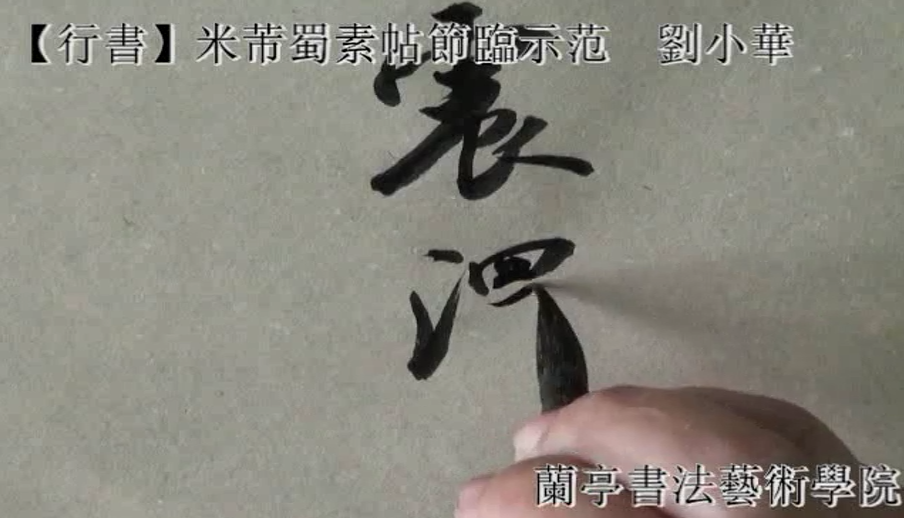 【行書】米芾蜀素帖節臨示范　劉小華
震
蘭亭書法藝術學院